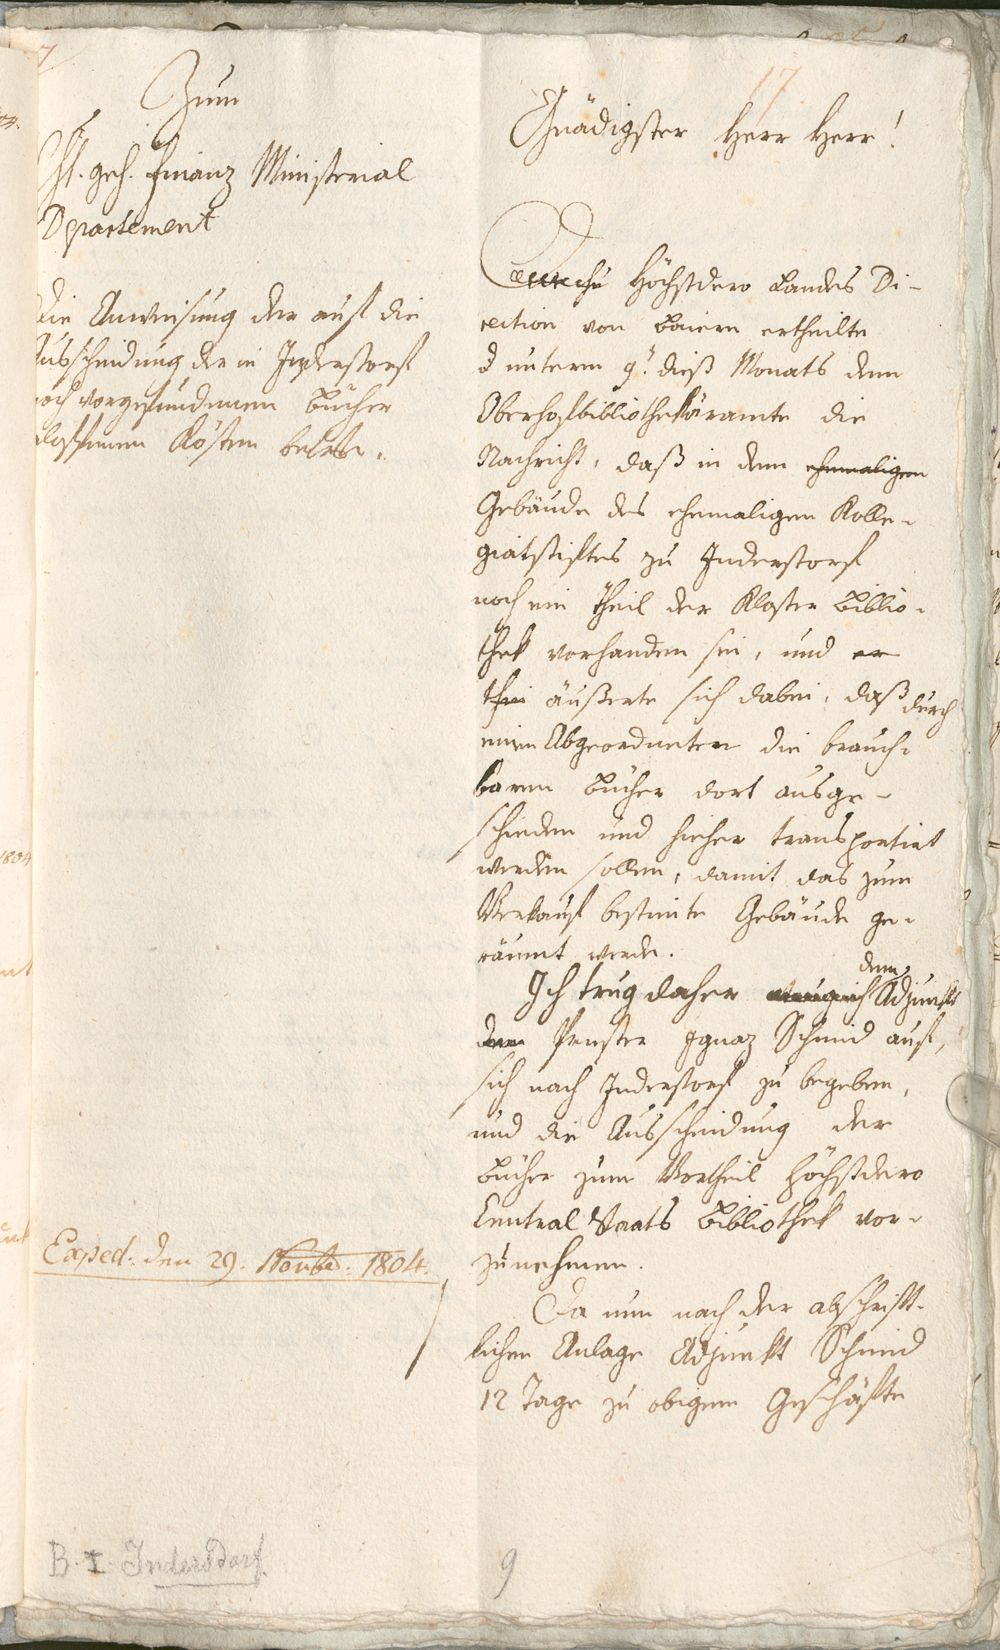 Zum
Chf. geh. Finanz Ministerial
Departement
Die Anweisung der auf die
Ausscheidung der in Inderstorf
noch vorgefundenen Bücher
erloffenen Kösten betr.
Exped: den 29. Novbr. 1804.
B. I. Indersdorf
17
Gnädigster Herr Herr!
Höchstdero Landes Di-
rection von Baiern ertheilte
unterm 9t. dieß Monats dem
Oberhofbibliothekäramte die
Nachricht, daß in dem ehemaligen
Gebäude des ehemaligen Kolle-
giatstiftes zu Inderstorf
noch ein Theil der Kloster Biblio-
thek vorhanden sei, und er
äußerte sich dabei, daß durch
einen Abgeordneten die brauch-
baren Bücher dort ausge-
schieden und hieher transportirt
werden sollen, damit das zum
Verkauf bestimte Gebäude ge-
räumt werde.
dem
Ich trug daher Adjunkt
dem Priester Ignaz Schmid auf,
sich nach Inderstorf zu begeben,
und die Ausscheidung der
Bücher zum Vortheil Höchstdero
Central Staats Bibliothek vor-
zunehmen.
Da nun nach der abschrift-
lichen Anlage Adjunkt Schmid
12 Tage zu obigem Geschäfte
9